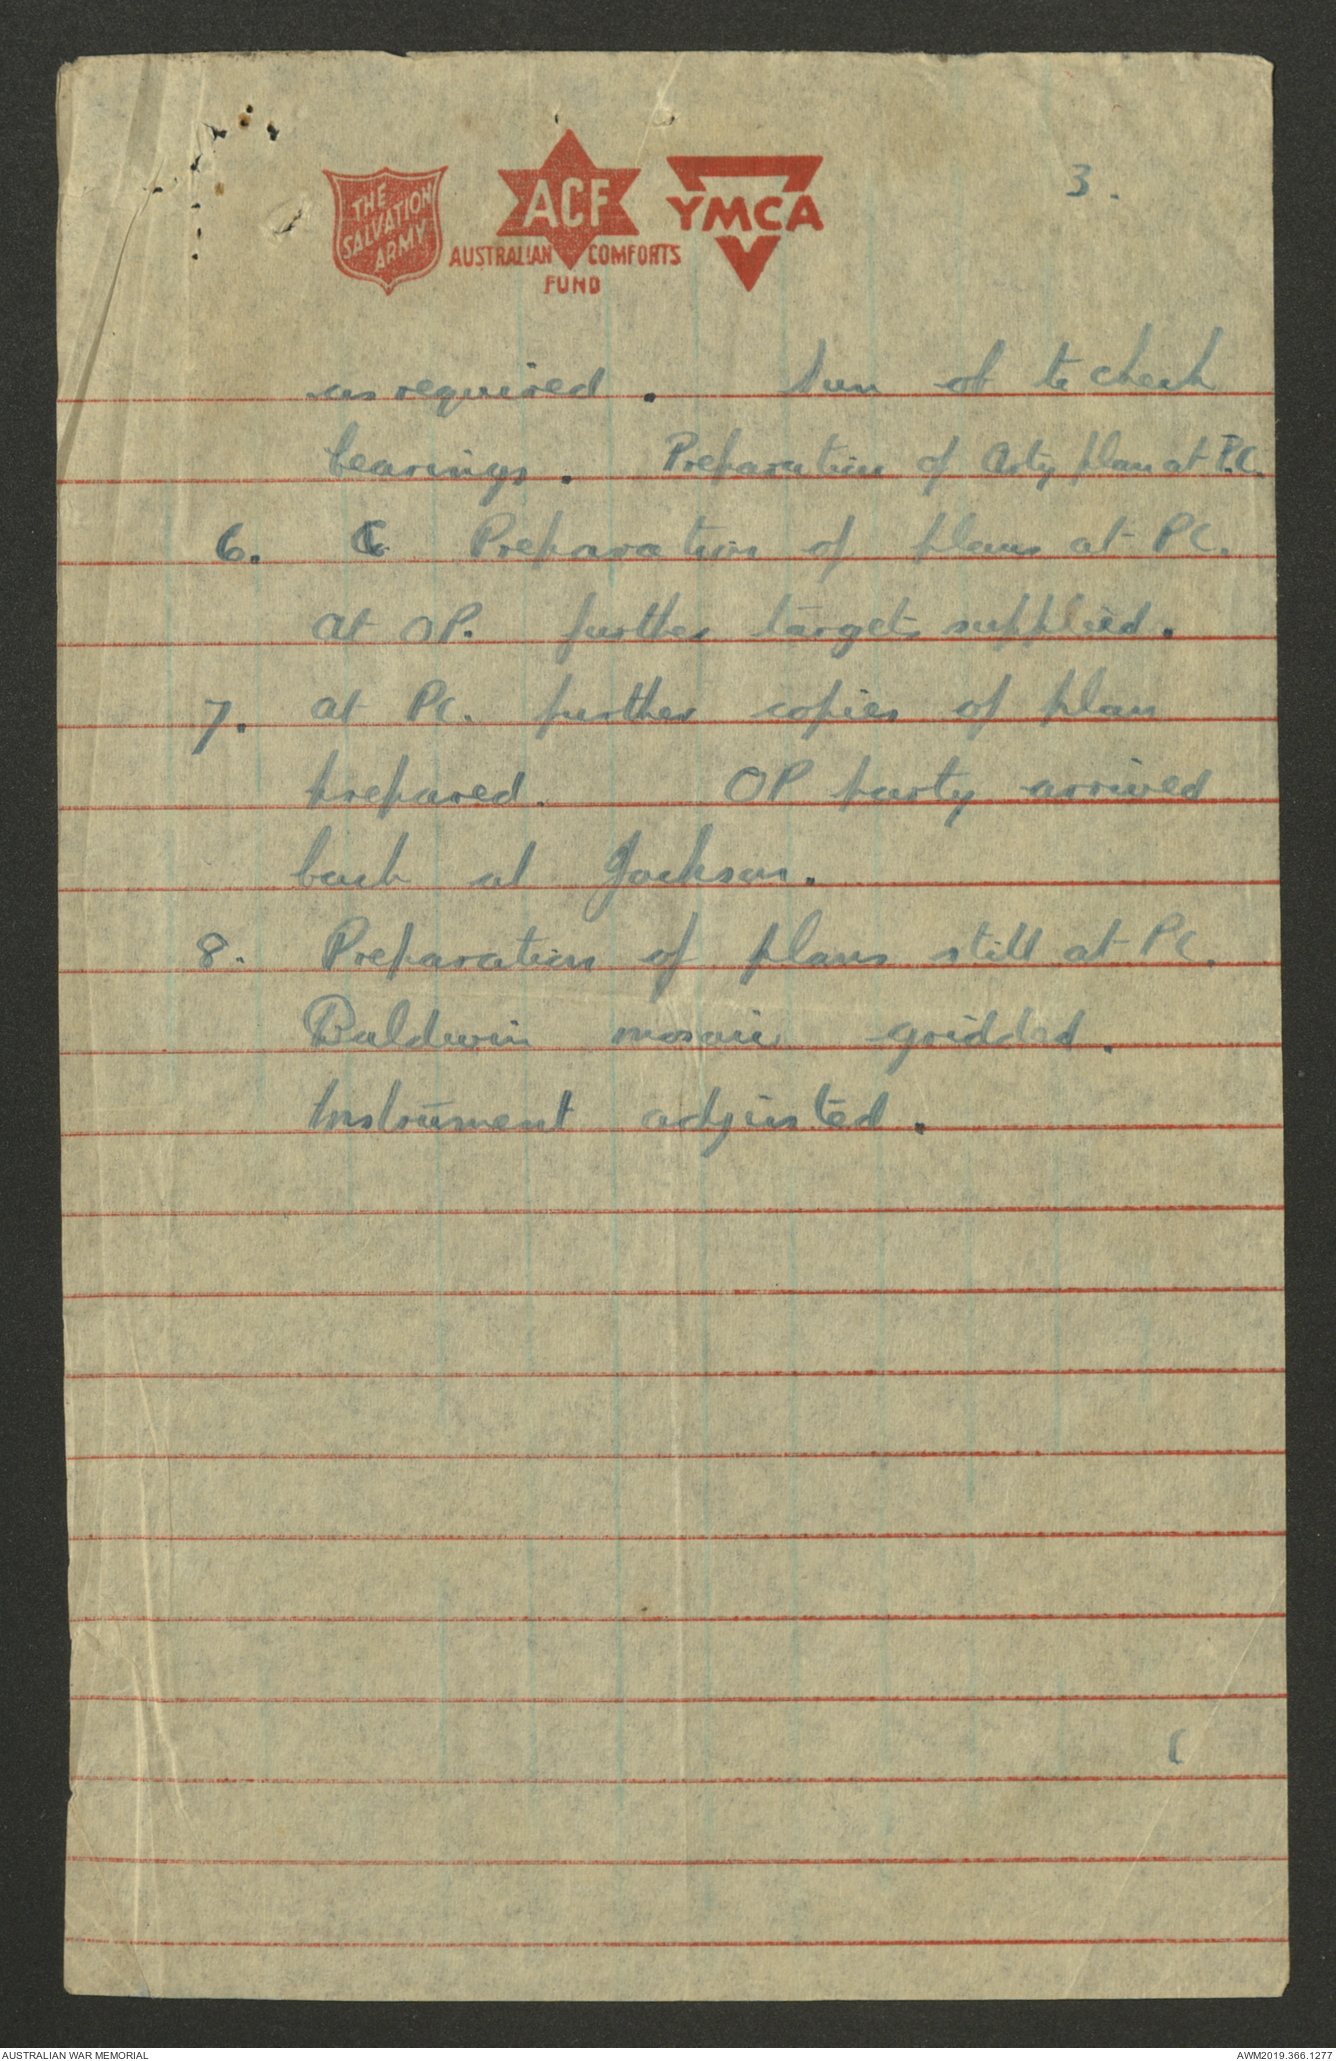 THE SALVATION ARMY
ACF
AUSTRALIAN COMFORTS FUND
YMCA
3.
as required. Sun ob to check
bearings. Preparation of Arty plan at P.C.
6. Preparation of plans at PC.
at OP. further targets supplied.
7. at PC. further copies of plan
prepared. OP party arrived
back at Jackson.
8. Preparation of plans still at PC.
Baldwin mosaic gridded.
Instrument adjusted.
AUSTRALIAN WAR MEMORIAL
AWM2019.366.1277